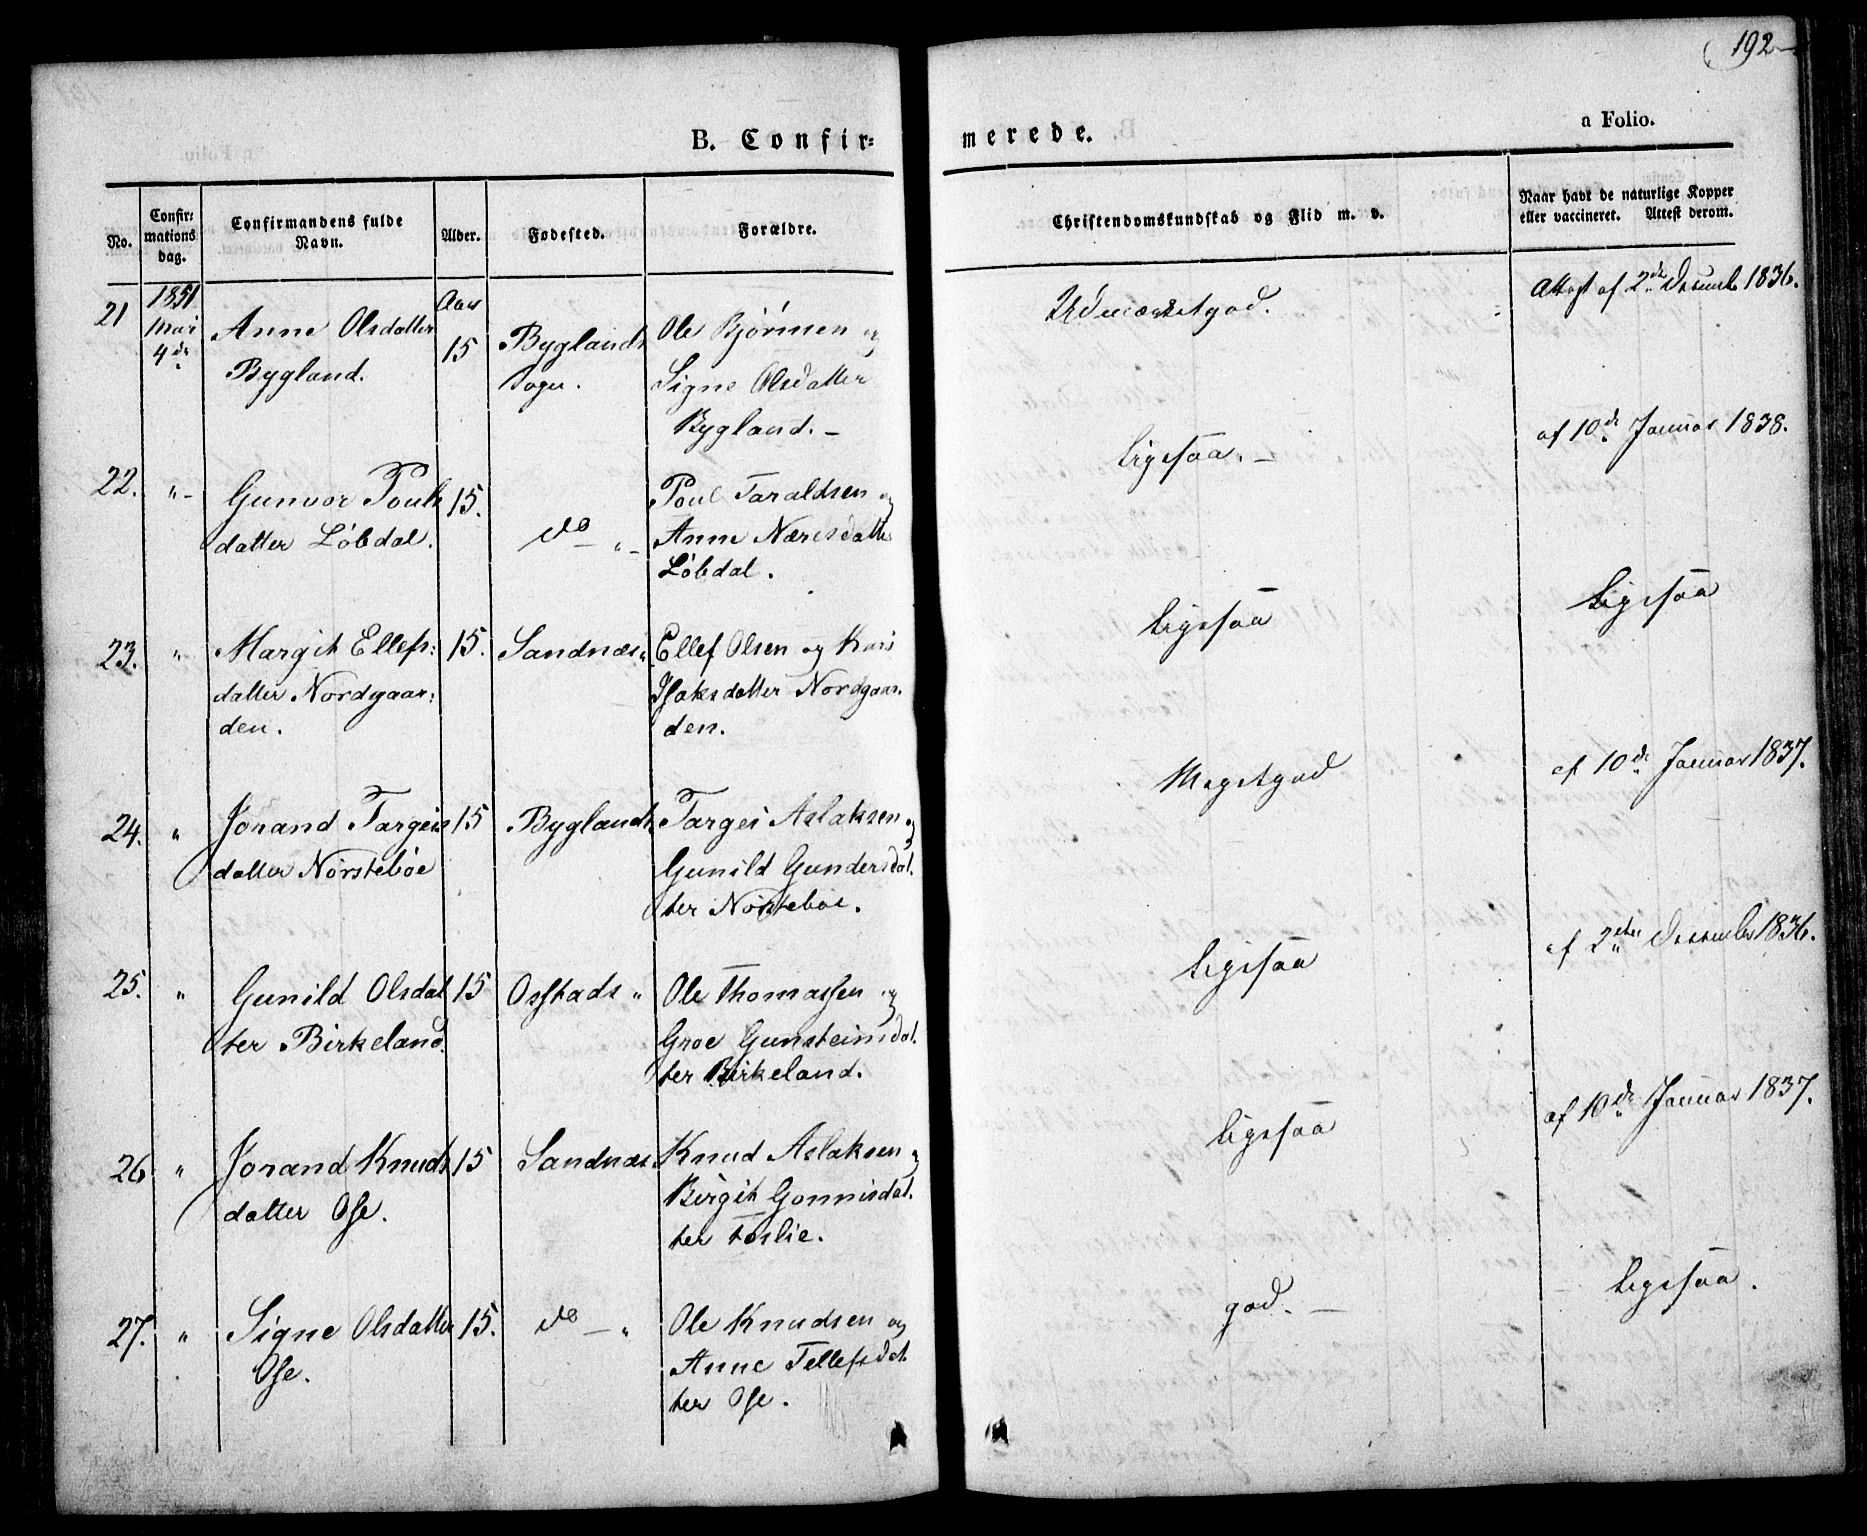 192
B. Confir=
merede.
a Folio.
No.
Confir=
mations
dag.
Confirmandens fulde
Navn.
Alder.
Fødested.
Forældre.
Christendomskundskab og Flid m. v.
Naar havt de naturlige Kopper
eller vaccineret. Attest derom.
21
1851
Mai
4de
Anne Olsdatter
Bygland.
Aar
15
Byglands
Sogn.
Ole Bjørnsen og
Signe Olsdatter
Bygland. –
Udmærketgod.
Attest af 2de Decemb 1836.
22.
" –
Gunvor Pouls
datter Løbdal.
15.
do – " –
Poul Taraldsen og
Anne Næresdatter
Løbdal.
Ligesaa. –
af 10de Januar 1838.
23.
"
Margit Ellefs:
datter Nordgaar:
den.
15.
Sandnæs "
Ellef Olsen og Kari
Isaksdatter Nordgaar.
den.
Ligesaa
Ligesaa
24.
"
Jorand Targeis
datter Nørstebøe
15
Byglands
Targei Aslaksen og
Gunild Gundersdat.
ter Nørstebøe.
Megetgod
af 10de Januar 1837.
25.
"
Gunild Olsdat
ter Birkeland.
15
Osstads "
Ole Thomassen og
Groe Gunsteinsdat.
ter Birkeland.
Ligesaa
af 2den December 1836.
26
"
Jorand Knuds
datter Ose.
15
Sandnæs
Knud Aslaksen og
Birgit Gonnisdat.
ter Foslie.
Ligesaa
af 10de Januar 1837.
27.
"
Signe Olsdatter
Ose.
15.
do – "
Ole Knudsen og
Anne Tellefsdat
ter Ose.
god. –
Ligesaa.